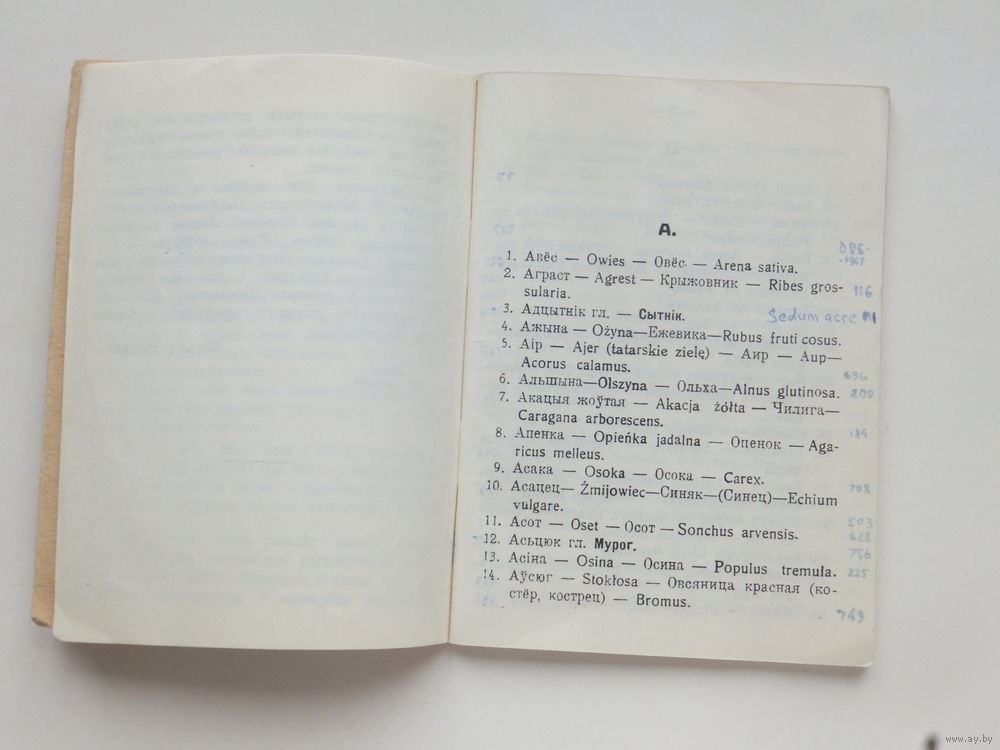 А.
1. Авёс — Owies — Овёс — Arena sativa.
2. Аграст — Agrest — Крыжовник — Ribes gros-
sularia. 116
3. Адцытнік гл. — Сытнік. Sedum acre
4. Ажына — Ożyna—Ежевика—Rubus fruti cosus.
5. Аір — Ajer (tatarskie zielę) — Аир — Аир—
Acorus calamus. 696
6. Альшына—Olszyna — Ольха—Alnus glutinosa. 200
7. Акацыя жоўтая — Akacja żółta — Чилига—
Caragana arborescens.
8. Апенка — Opieńka jadalna — Опенок — Aga-
ricus melleus.
9. Асака — Osoka — Осока — Carex.
10. Асацец— Żmijowiec—Синяк—(Синец)—Echium
vulgare.
11. Асот — Oset — Осот — Sonchus arvensis. 503
12. Асьцюк гл. Мурог. 756
13. Асіна — Osina — Осина — Populus tremula. 225
14. Аўсюг — Stokłosa — Овсяница красная (ко-
стёр, кострец) — Bromus. 749
www.ay.by